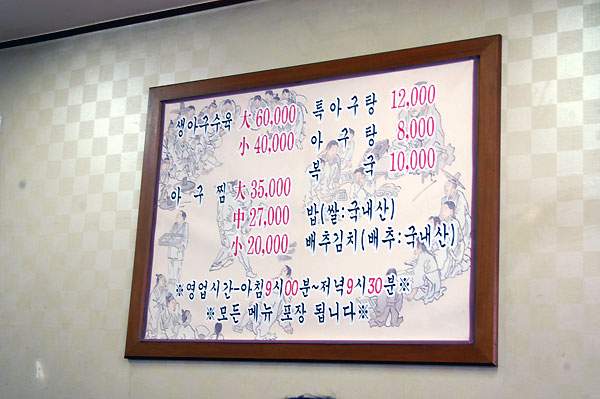 생아구수육 大 60,000
小 40,000
아구찜 大 35,000
中 27,000
小 20,000
특아구탕 12,000
아구탕 8,000
복국 10,000
밥(쌀:국내산)
배추김치(배추:국내산)
※영업시간-아침9시00분~저녁9시30분※
※모든 메뉴 포장 됩니다※